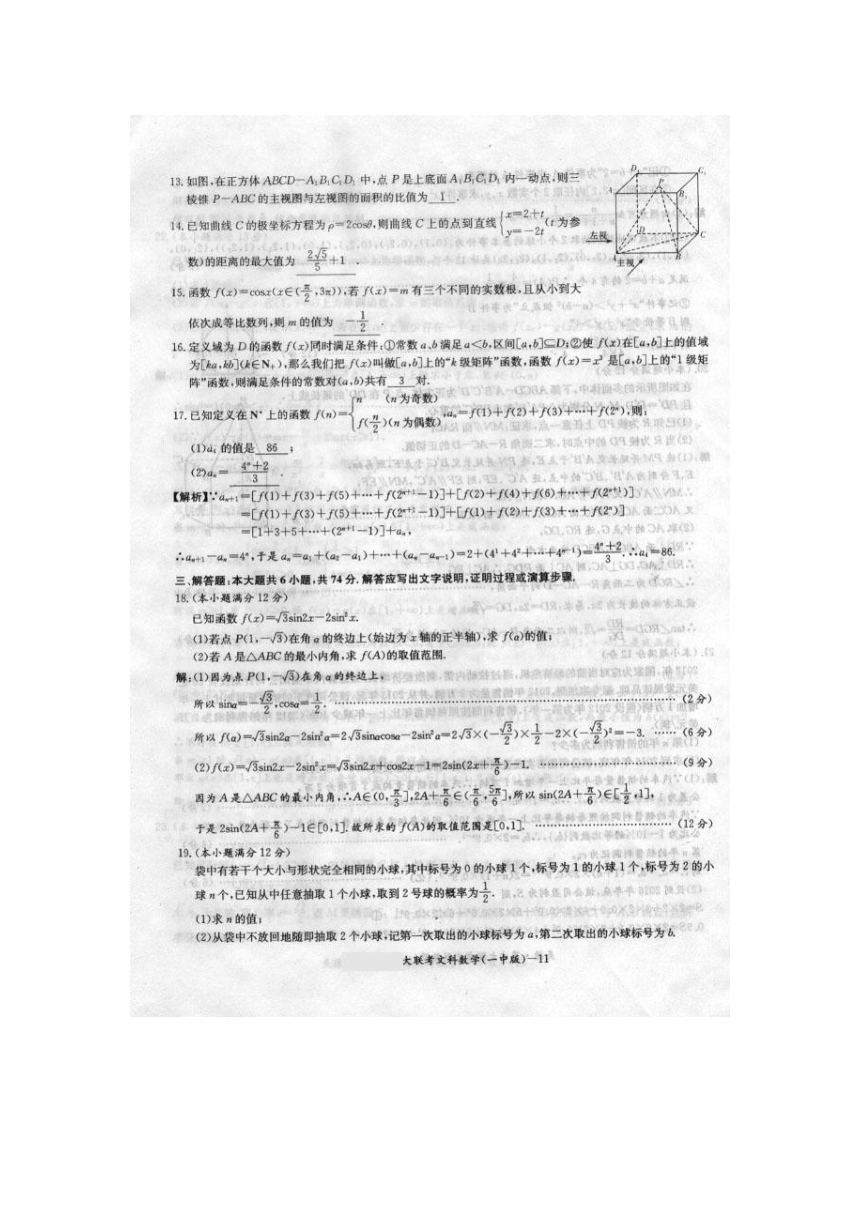 13. 如图,在正方体 ABCD—A₁B₁C₁D₁ 中,点 P 是上底面 A₁B₁C₁D₁ 内一动点,则三
棱锥 P—ABC 的主视图与左视图的面积的比值为 1 .
14. 已知曲线 C 的极坐标方程为 ρ=2cosθ,则曲线 C 上的点到直线 {x=2+t y=-2t (t 为参
数)的距离的最大值为 2√5/5+1 .
左视
主视
15. 函数 f(x)=cosx(x∈(π/2,3π)),若 f(x)=m 有三个不同的实数根,且从小到大
依次成等比数列,则 m 的值为 -1/2 .
16. 定义域为 D 的函数 f(x)同时满足条件:①常数 a,b 满足 a<b,区间[a,b]⊆D;②使 f(x)在[a,b]上的值域
为[ka,kb](k∈N₊),那么我们把 f(x)叫做[a,b]上的“k 级矩阵”函数,函数 f(x)=x³ 是[a,b]上的“1 级矩
阵”函数,则满足条件的常数对(a,b)共有 3 对.
17. 已知定义在 N* 上的函数 f(n)={n (n 为奇数) f(n/2)(n 为偶数) ,aₙ=f(1)+f(2)+f(3)+…+f(2ⁿ),则:
(1)a₄ 的值是 86 ;
(2)aₙ= (4ⁿ+2)/3 .
【解析】∵aₙ₊₁=[f(1)+f(3)+f(5)+…+f(2ⁿ⁺¹-1)]+[f(2)+f(4)+f(6)+…+f(2ⁿ⁺¹)]
=[f(1)+f(3)+f(5)+…+f(2ⁿ⁺¹-1)]+[f(1)+f(2)+f(3)+…+f(2ⁿ)]
=[1+3+5+…+(2ⁿ⁺¹-1)]+aₙ,
∴aₙ₊₁-aₙ=4ⁿ,于是 aₙ=a₁+(a₂-a₁)+…+(aₙ-aₙ₋₁)=2+(4¹+4²+…+4ⁿ⁻¹)=(4ⁿ+2)/3,∴a₄=86.
三、解答题:本大题共 6 小题,共 74 分.解答应写出文字说明,证明过程或演算步骤.
18. (本小题满分 12 分)
已知函数 f(x)=√3sin2x-2sin²x.
(1)若点 P(1,-√3)在角 α 的终边上(始边为 x 轴的正半轴),求 f(α)的值;
(2)若 A 是△ABC 的最小内角,求 f(A)的取值范围.
解:(1)因为点 P(1,-√3)在角 α 的终边上,
所以 sinα=-√3/2,cosα=1/2. …… (2 分)
所以 f(α)=√3sin2α-2sin²α=2√3sinαcosα-2sin²α=2√3×(-√3/2)×1/2-2×(-√3/2)²=-3. …… (6 分)
(2)f(x)=√3sin2x-2sin²x=√3sin2x+cos2x-1=2sin(2x+π/6)-1. …… (9 分)
因为 A 是△ABC 的最小内角,∴A∈(0,π/3],2A+π/6∈(π/6,5π/6],所以 sin(2A+π/6)∈[1/2,1],
于是 2sin(2A+π/6)-1∈[0,1].故所求的 f(A)的取值范围是[0,1]. …… (12 分)
19. (本小题满分 12 分)
袋中有若干个大小与形状完全相同的小球,其中标号为 0 的小球 1 个,标号为 1 的小球 1 个,标号为 2 的小
球 n 个,已知从中任意抽取 1 个小球,取到 2 号球的概率为1/2.
(1)求 n 的值;
(2)从袋中不放回地随即抽取 2 个小球,记第一次取出的小球标号为 a,第二次取出的小球标号为 b.
大联考文科数学(一中版)—11